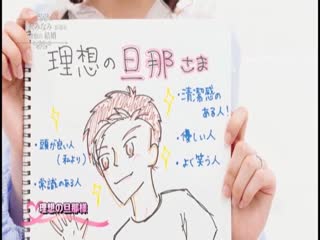 理想の旦那さま
・清潔感の
ある人!
・頭が良い人
(私より)
・優しい人
・よく笑う人
・常識のある人
理想の旦那様